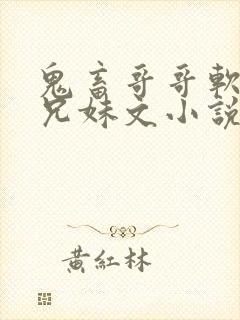 鬼畜哥哥軟
兄妹文小說
黃紅林